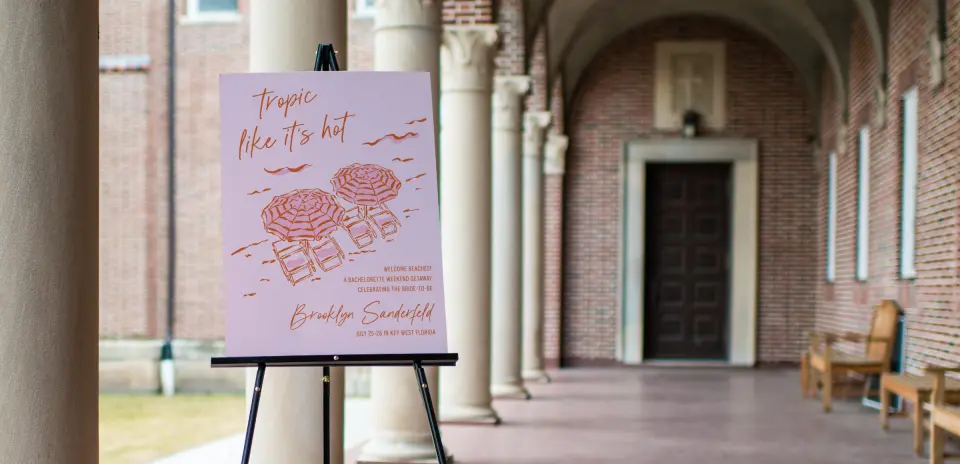 tropic
like it's hot
WELCOME BEACHES!
A BACHELORETTE WEEKEND GETAWAY
CELEBRATING THE BRIDE-TO-BE
Brooklyn Sanderfeld
JULY 25-26 IN KEY WEST FLORIDA